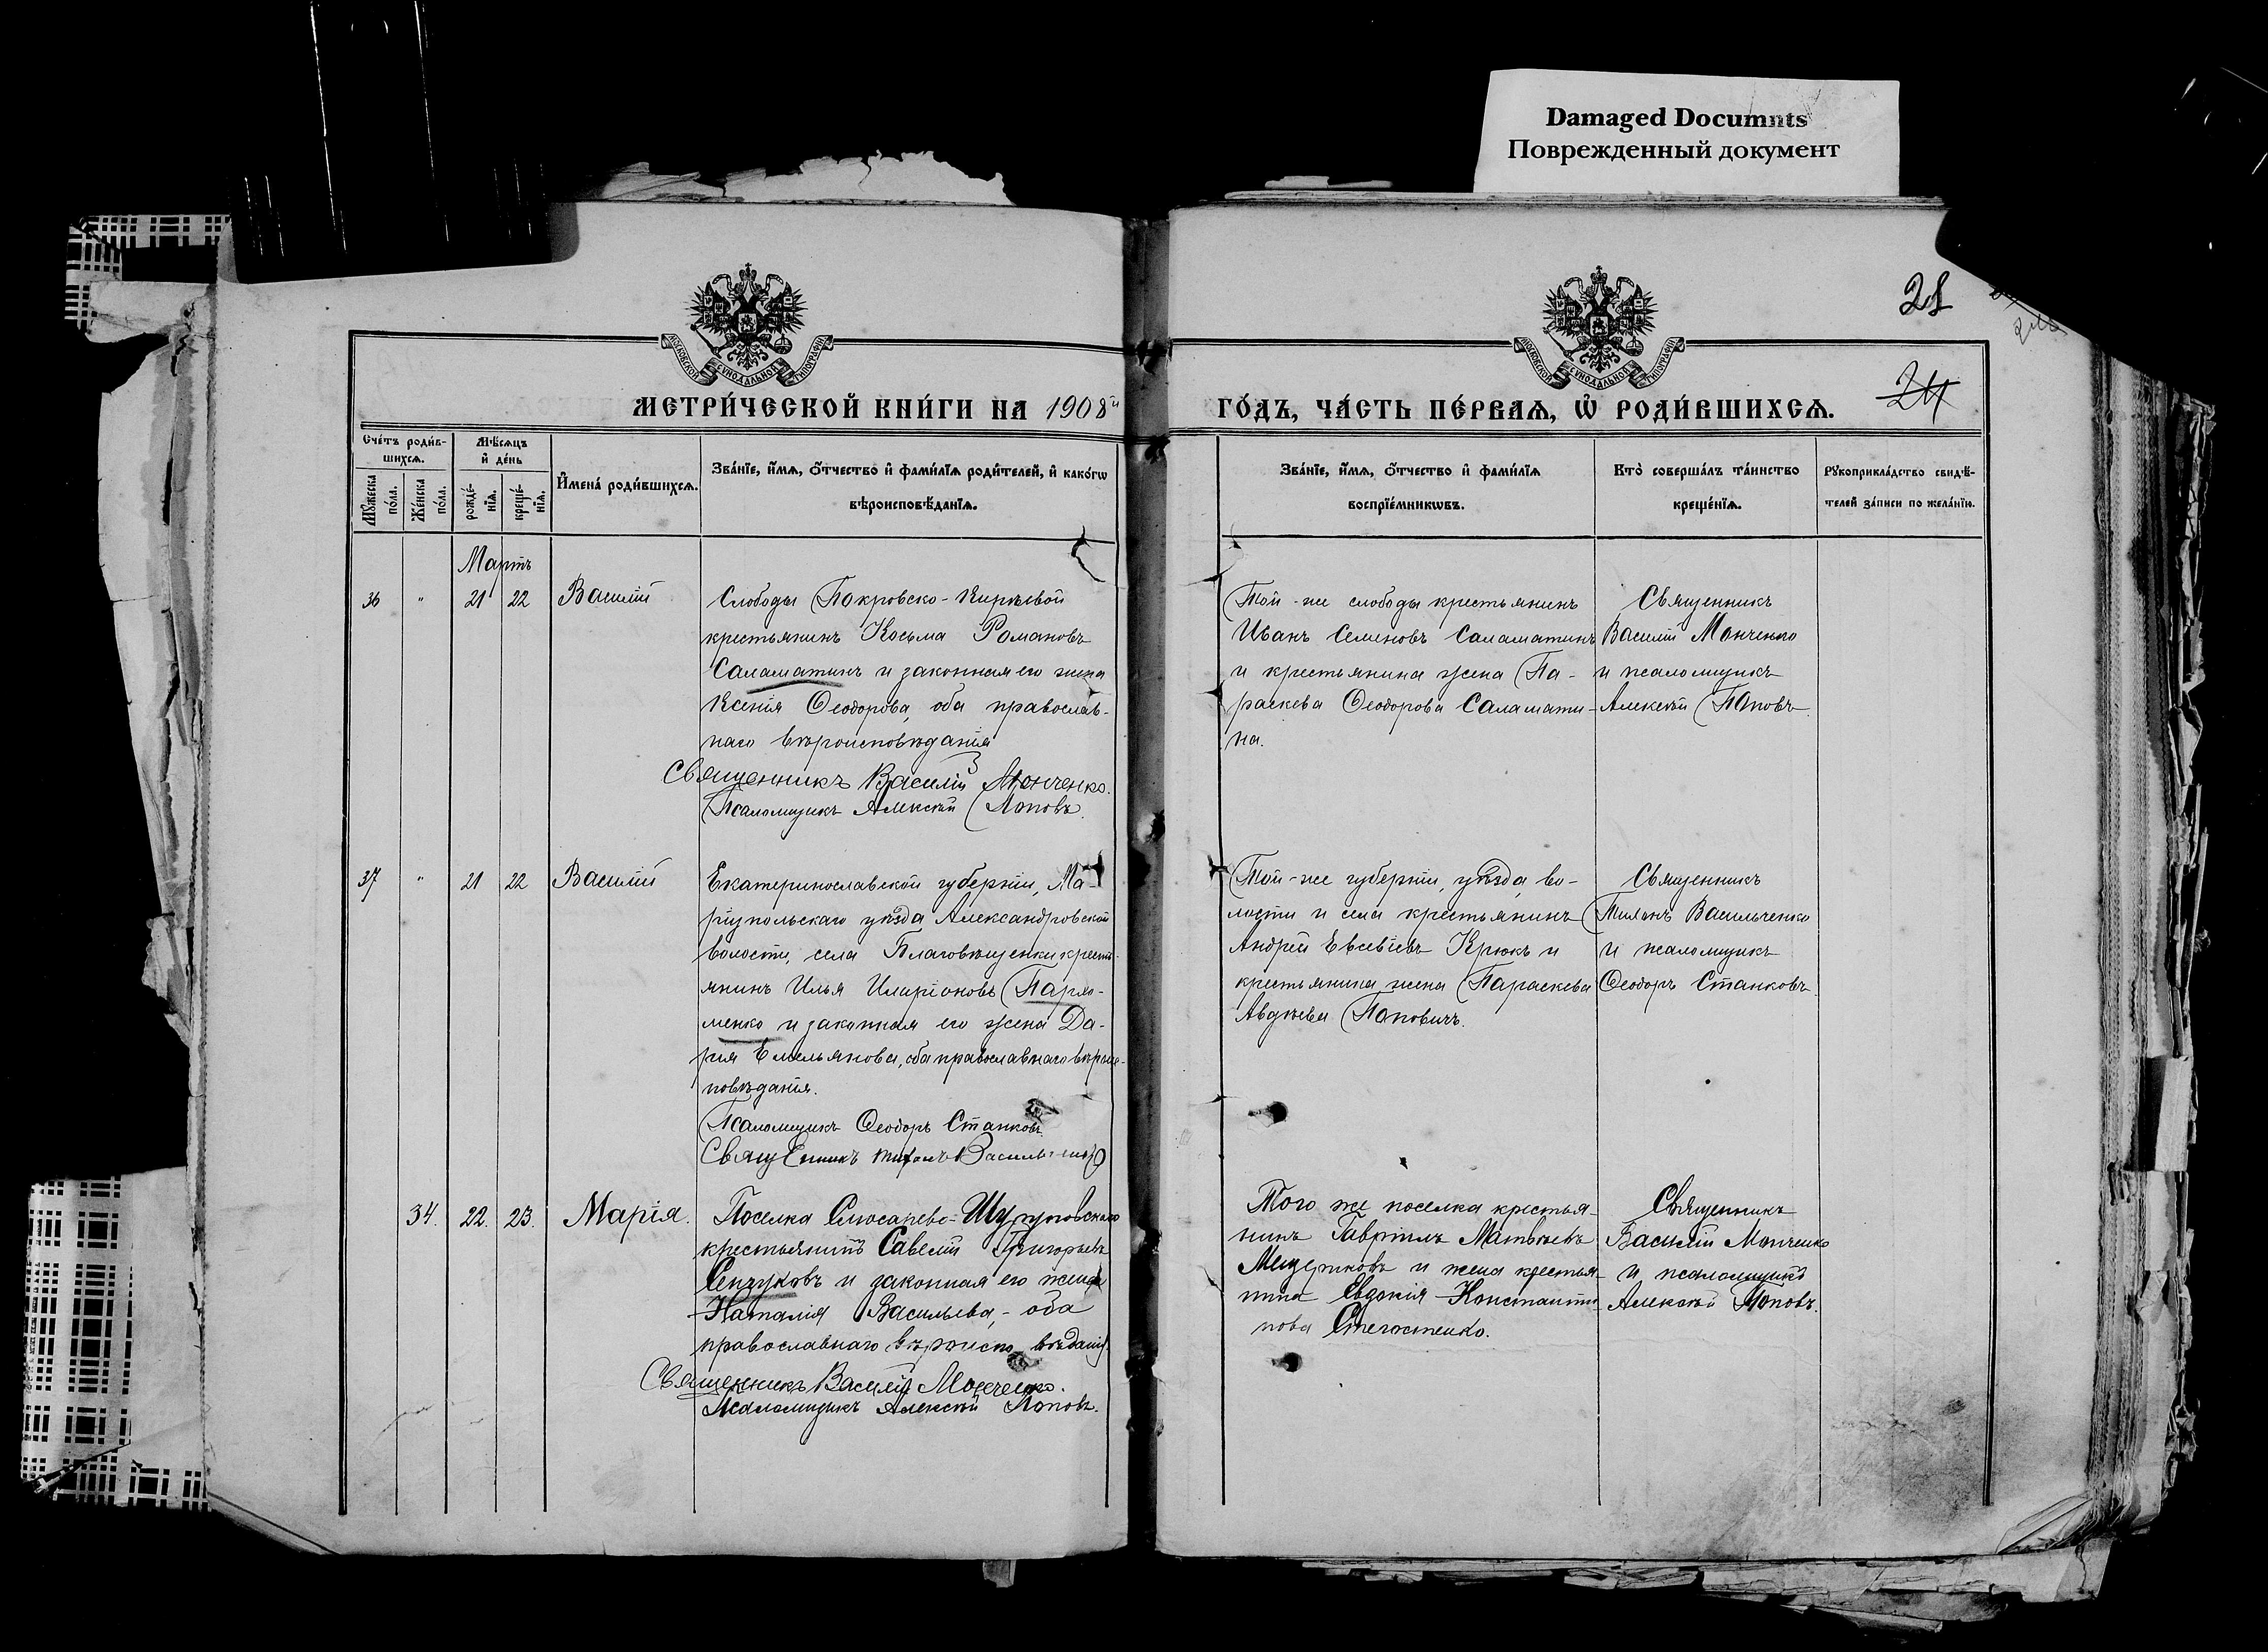 Damaged Documnts
Поврежденный документ
21
МОСКОВСКОЙ СУНОДАЛЬНОЙ ТИПОГРАФІИ
МОСКОВСКОЙ СУНОДАЛЬНОЙ ТИПОГРАФІИ
МЕТРИ́ЧЕСКОЙ КНИ́ГИ НА 1908й
ГО́ДЪ, ЧА́СТЬ ПЕ́РВАѦ, Ѡ҆ РОДИ́ВШИХСѦ.
24
Сче́тъ роди́в-
шихсѧ.
Мѣ́сѧцъ
и҆ де́нь
Мꙋ́жеска
по́ла.
Же́нска
по́ла.
рожде́-
нїѧ.
креще́-
нїѧ.
И҆мена̀ роди́вшихсѧ.
Зва́нїе, и҆́мѧ, ѻ҆́тчество и҆ фами́лїѧ роди́телей, и҆ како́гѡ
вѣроисповѣ́данїѧ.
Зва́нїе, и҆́мѧ, ѻ҆́тчество и҆ фами́лїѧ
воспрїе́мникѡвъ.
Кто̀ соверша́лъ та́инство
креще́нїѧ.
Рꙋкоприкла́дство свидѣ́-
телей за́писи по жела́нїю.
Мартъ
36 " 21 22 Василій
Слободы Покровско-Кирѣевой
крестьянинъ Косьма Романовъ
Саламатинъ и законная его жена
Ксенія Ѳеодорова, оба православ-
наго вѣроисповѣданія
Священникъ Василій Мончен­ко.
Псаломщикъ Алексѣй Поповъ.
Той-же слободы крестьянинъ
Иванъ Семеновъ Саламатинъ
и крестьянина жена Па-
раскева Ѳеодорова Саламати-
на.
Священникъ
Василій Монченко
и псаломщикъ
Алексѣй Поповъ
37 " 21 22 Василій
Екатеринославской губерніи, Ма-
ріупольскаго уѣзда Александровской
волости, села Благовѣщенки кресть-
янинъ Илья Иларіоновъ Пархо-
менко и законная его жена Да-
рия Емельянова, оба православнаго вѣроис-
повѣданія.
Псаломщикъ Ѳеодоръ Станковъ
Священникъ Василь
Той-же губерніи, уѣзда, во-
лости и села крестьянинъ
Андрей Евсевіевъ Крюкъ и
крестьянина жена Параскева
Авдѣева Поповичъ.
Священникъ
Василь­ченко
и псаломщикъ
Ѳеодоръ Станковъ
34. 22. 23. Марія.
Поселка Слюсарево-
крестьянинъ Савелій Григорьевъ
и законная его жена
Наталія Васильева, - оба
православнаго вѣроисповѣданія.
Священникъ Василій Монченко.
Псаломщикъ Алексѣй Поповъ.
Того же поселка крестья-
нинъ Гавріилъ Матвѣевъ
Мещеряковъ и жена крестья-
нина Евдокія Константи-
нова
Священникъ
Василій Монченко
и псаломщикъ
Алексѣй Поповъ.